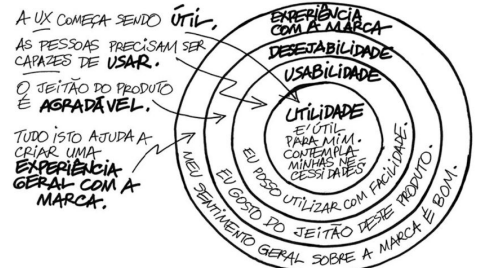 A UX COMEÇA SENDO ÚTIL.
AS PESSOAS PRECISAM SER
CAPAZES DE USAR.
O JEITÃO DO PRODUTO
É AGRADÁVEL.
TUDO ISTO AJUDA A
CRIAR UMA
EXPERIÊNCIA
GERAL COM A
MARCA.
EXPERIÊNCIA
COM A MARCA
DESEJABILIDADE
USABILIDADE
UTILIDADE
E' ÚTIL
PARA MIM.
CONTEMPLA
MINHAS NE-
CESSIDADES
EU POSSO UTILIZAR COM FACILIDADE.
EU GOSTO DO JEITÃO DESTE PRODUTO.
MEU SENTIMENTO GERAL SOBRE A MARCA É BOM.